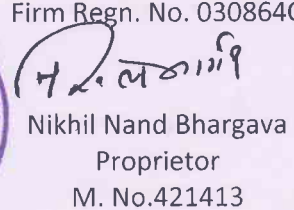 Firm Regn. No. 030864
Nikhil Nand Bhargava
Proprietor
M. No.421413